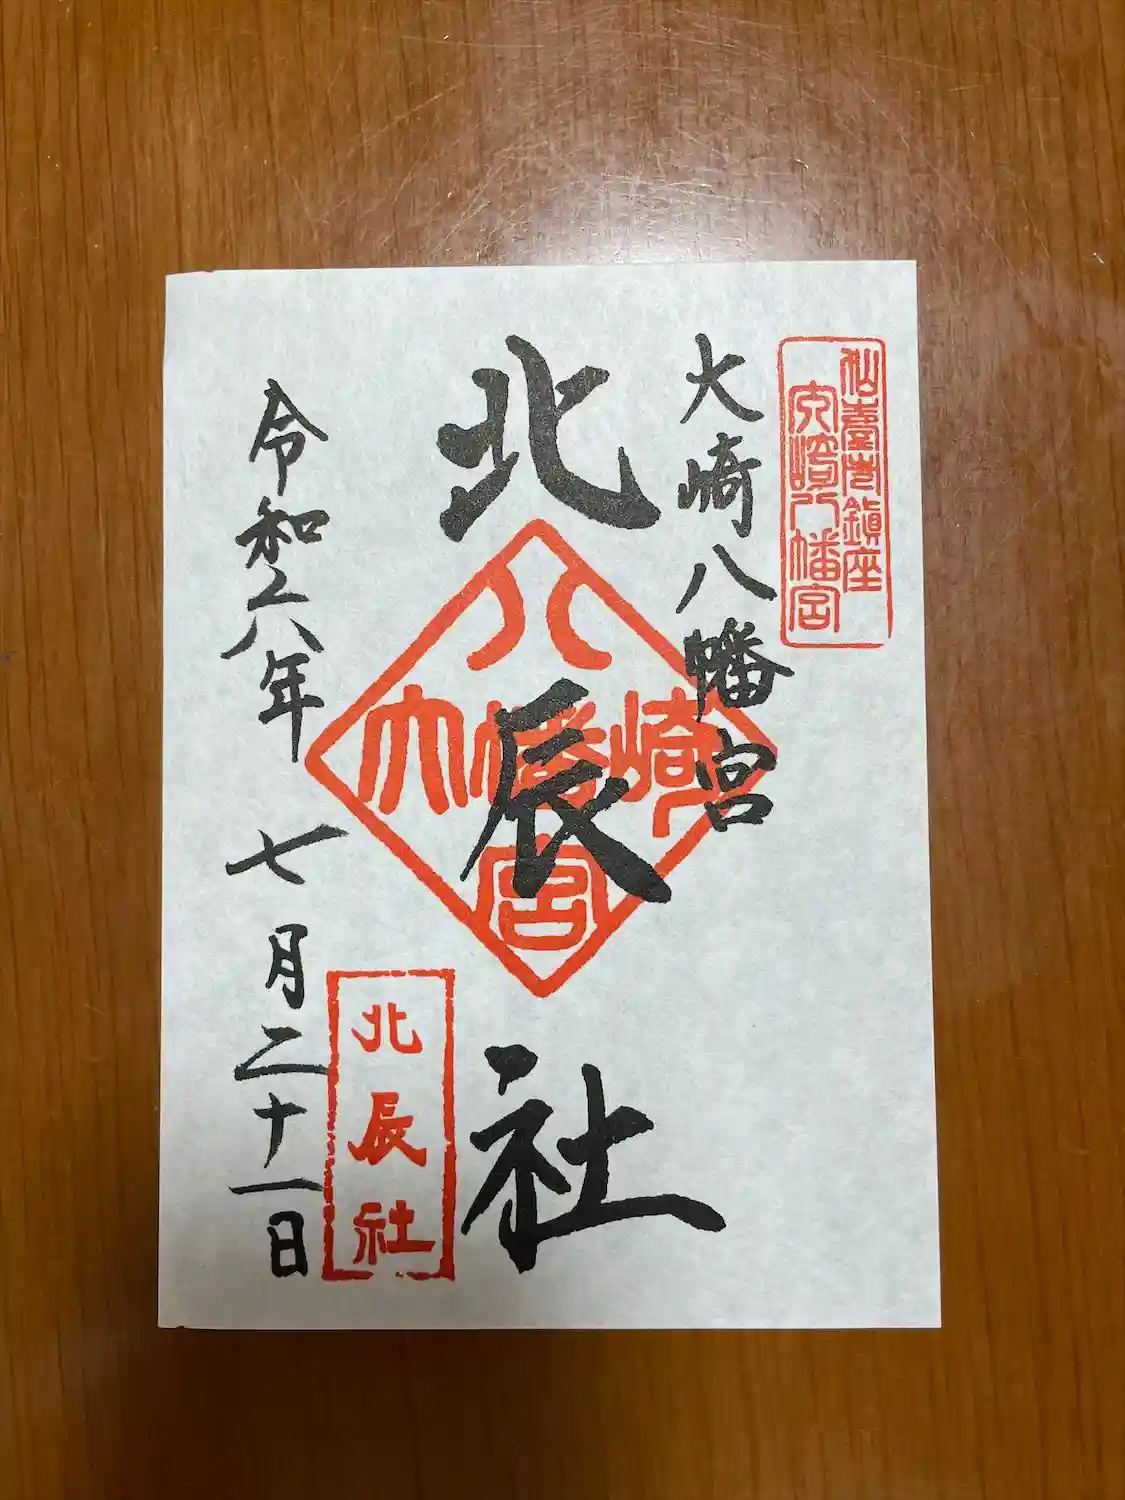 仙臺市鎮座
大崎八幡宮
大崎八幡宮
北辰社
八
大幡崎
宮
北辰社
令和六年七月二十一日